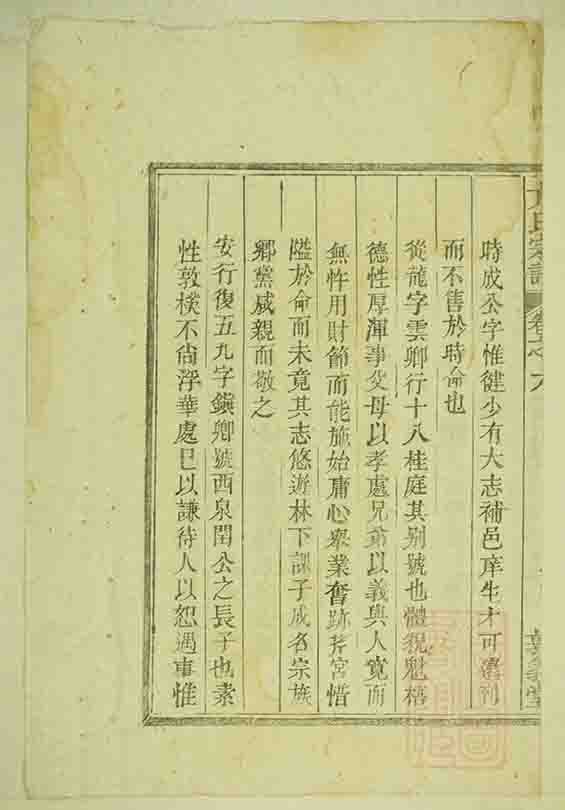 氏宗譜 卷之 六
時成公字惟健少有大志補邑庠生才可
而不售於時命也
從龍字雲卿行十八桂庭其別號也體貌魁梧
德性厚渾事父母以孝處兄弟以義與人寬而
無忤用財節而能施始庸心舉業奮跡芹宮惜
隘於命而未竟其志悠遊林下課子成名宗族
鄉黨咸親而敬之
安行復五九字鎮卿號西泉閏公之長子也素
性敦樸不尙浮華處已以謙待人以恕遇事惟